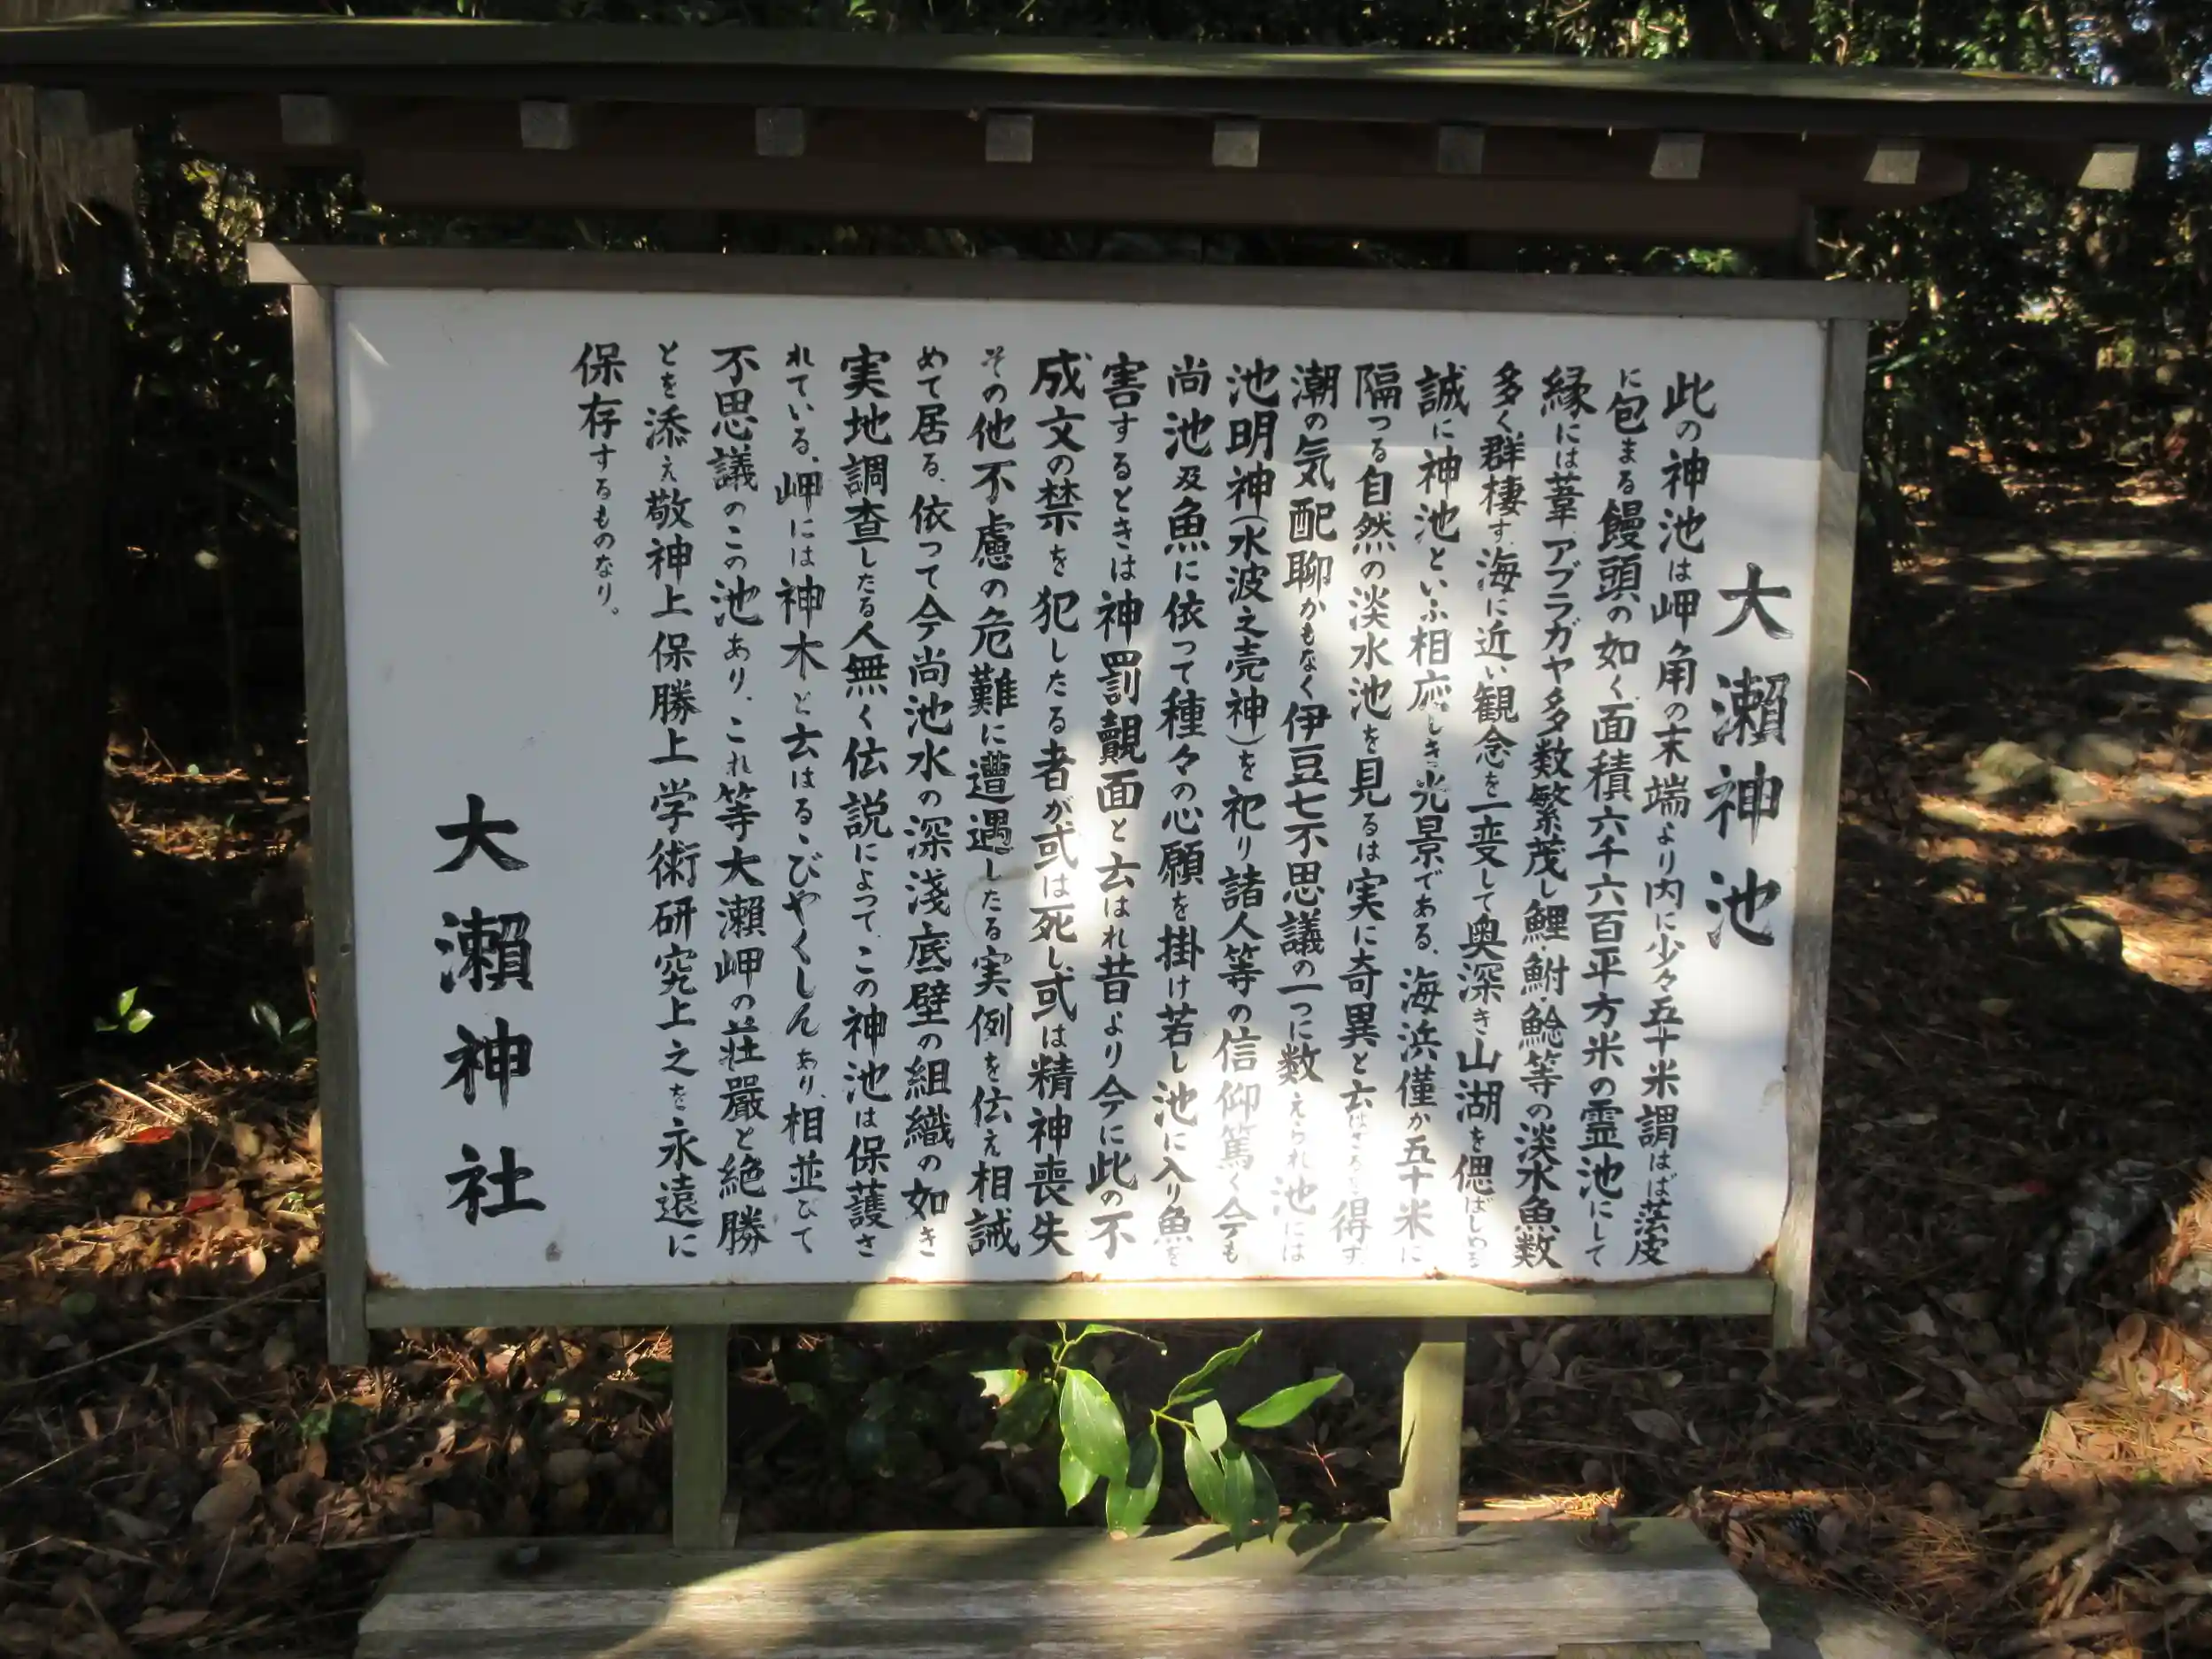 大瀬神池
此の神池は岬角の末端より内に少々五十米謂はば皮
に包まる饅頭の如く、面積六千六百平方米の霊池にして
縁には葦、アブラガヤ多数繁茂し鯉、鮒、鯰等の淡水魚数
多く群棲す、海に近い観念を一変して奥深き山湖を偲ばしめる
誠に神池といふ相応しき光景である、海浜僅か五十米に
隔つる自然の淡水池を見るは実に奇異と云はざるを得ず、
潮の気配聊かもなく伊豆七不思議の一つに数えられ池には
池明神(水波之売神)を祀り諸人等の信仰篤く今も
尚池及魚に依つて種々の心願を掛け若し池に入り魚を
害するときは神罰覿面と云はれ昔より今に此の不
成文の禁を犯したる者が或は死し、或は精神喪失
その他不慮の危難に遭遇したる実例を伝え相誡
めて居る、依つて今尚池水の深浅底壁の組織の如き
実地調査したる人無く伝説によつて、この神池は保護さ
れている、岬には神木と云はるゝびやくしんあり、相並びて
不思議のこの池あり、これ等大瀬岬の荘嚴と絶勝
とを添え敬神上保勝上学術研究上之を永遠に
保存するものなり。
大瀬神社